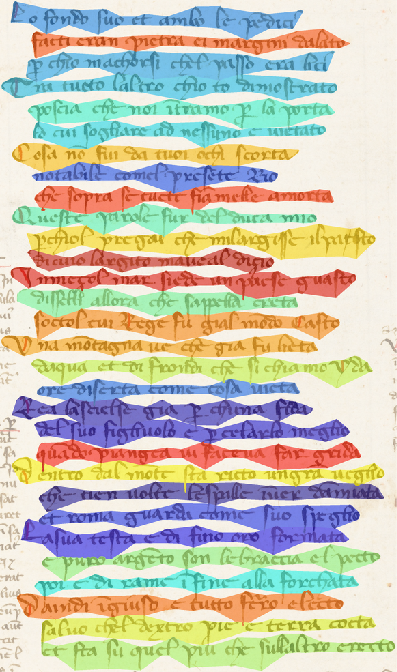 Lo fondo suo et ambo le pedici
fatti eran pietra et i margini dallato
p chio macorsi chel passo era lici
Tra tucto laltro chio to dimostrato
poscia che noi itramo p la porta
lo cui sogliare ad nessuno e vietato
Cosa nō fu da tuoi ochi scorta
notabile comel presēte Rio
che sopra se tucte fiamelle amorta
Queste parole fur del duca mio
pchiol pregai che milargisse il pasto
di cui largito mavea il disio
In meçço l mar siede un paese guasto
dissell allora che sappella creta
socto l cui rege fu gia l modo casto
Una mōtagna ve che gia fu lieta
daqua et di frondi che si chiamo yda
ora diserta come cosa vieta
Rea lascielse gia p cuna fida
del suo figliuolo et p celarlo meglio
quādo piangea vi facea far grida
Dentro dal mōte sta ricto un gra veglio
che tien volte le spalle inver damiata
et roma guarda come suo speglio
La sua testa e di fino oro formata
e puro argēto son le braccia e l pecto
poi e di rame ī fine alla forchata
Da indi ī giuso e tucto ferro electo
salvo chel dextro pie e terra cocta
et sta su quel piu che sullaltro erecto